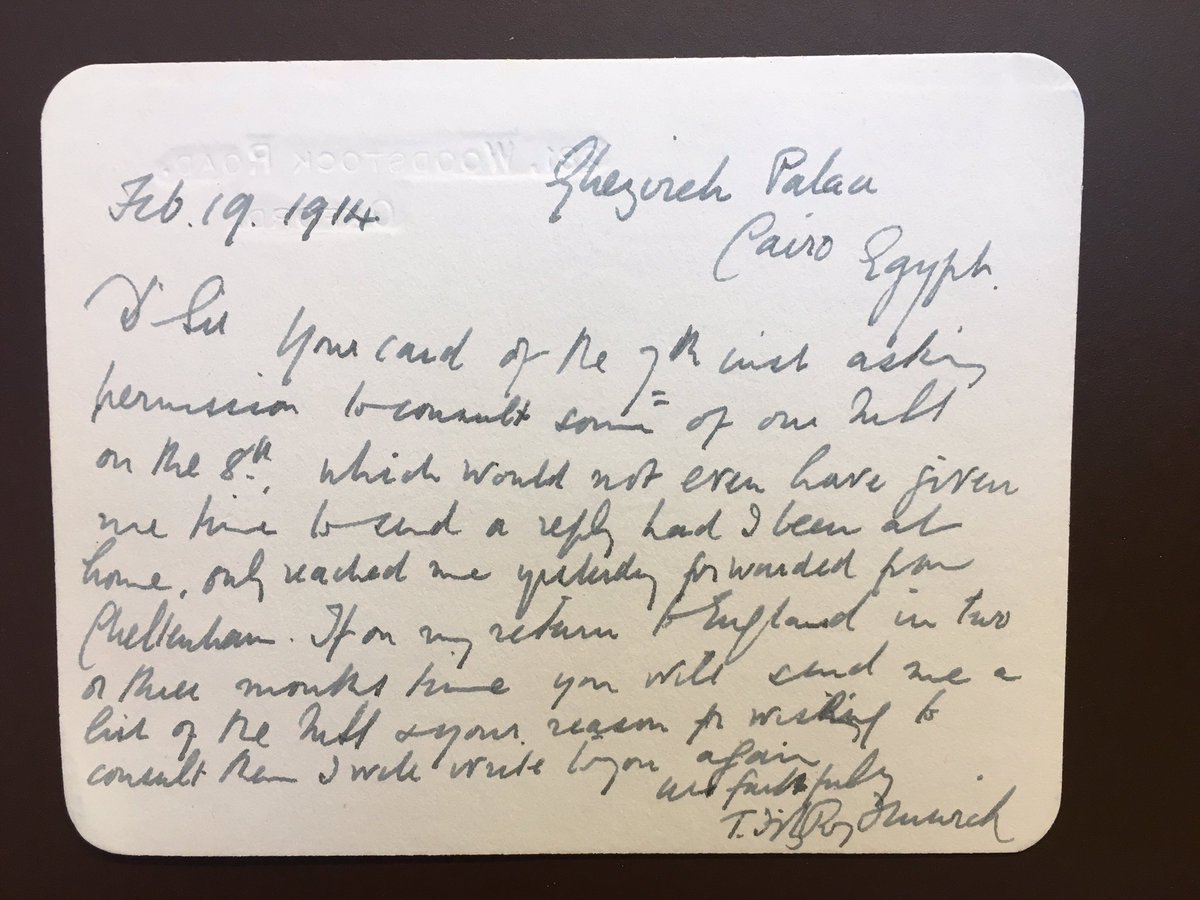 31. WOODSTOCK ROAD.
OXFORD
Feb. 19. 1914
Ghezireh Palace
Cairo Egypt.
Dr Sir Your card of the 7th inst asking
permission to consult some of our MSS
on the 8th, which would not even have given
me time to send a reply had I been at
home, only reached me yesterday forwarded from
Cheltenham. If on my return to England in two
or three months time you will send me a
list of the MSS & your reason for wishing to
consult them I will write to you again
Yrs faithfully
T. FitzRoy Fenwick